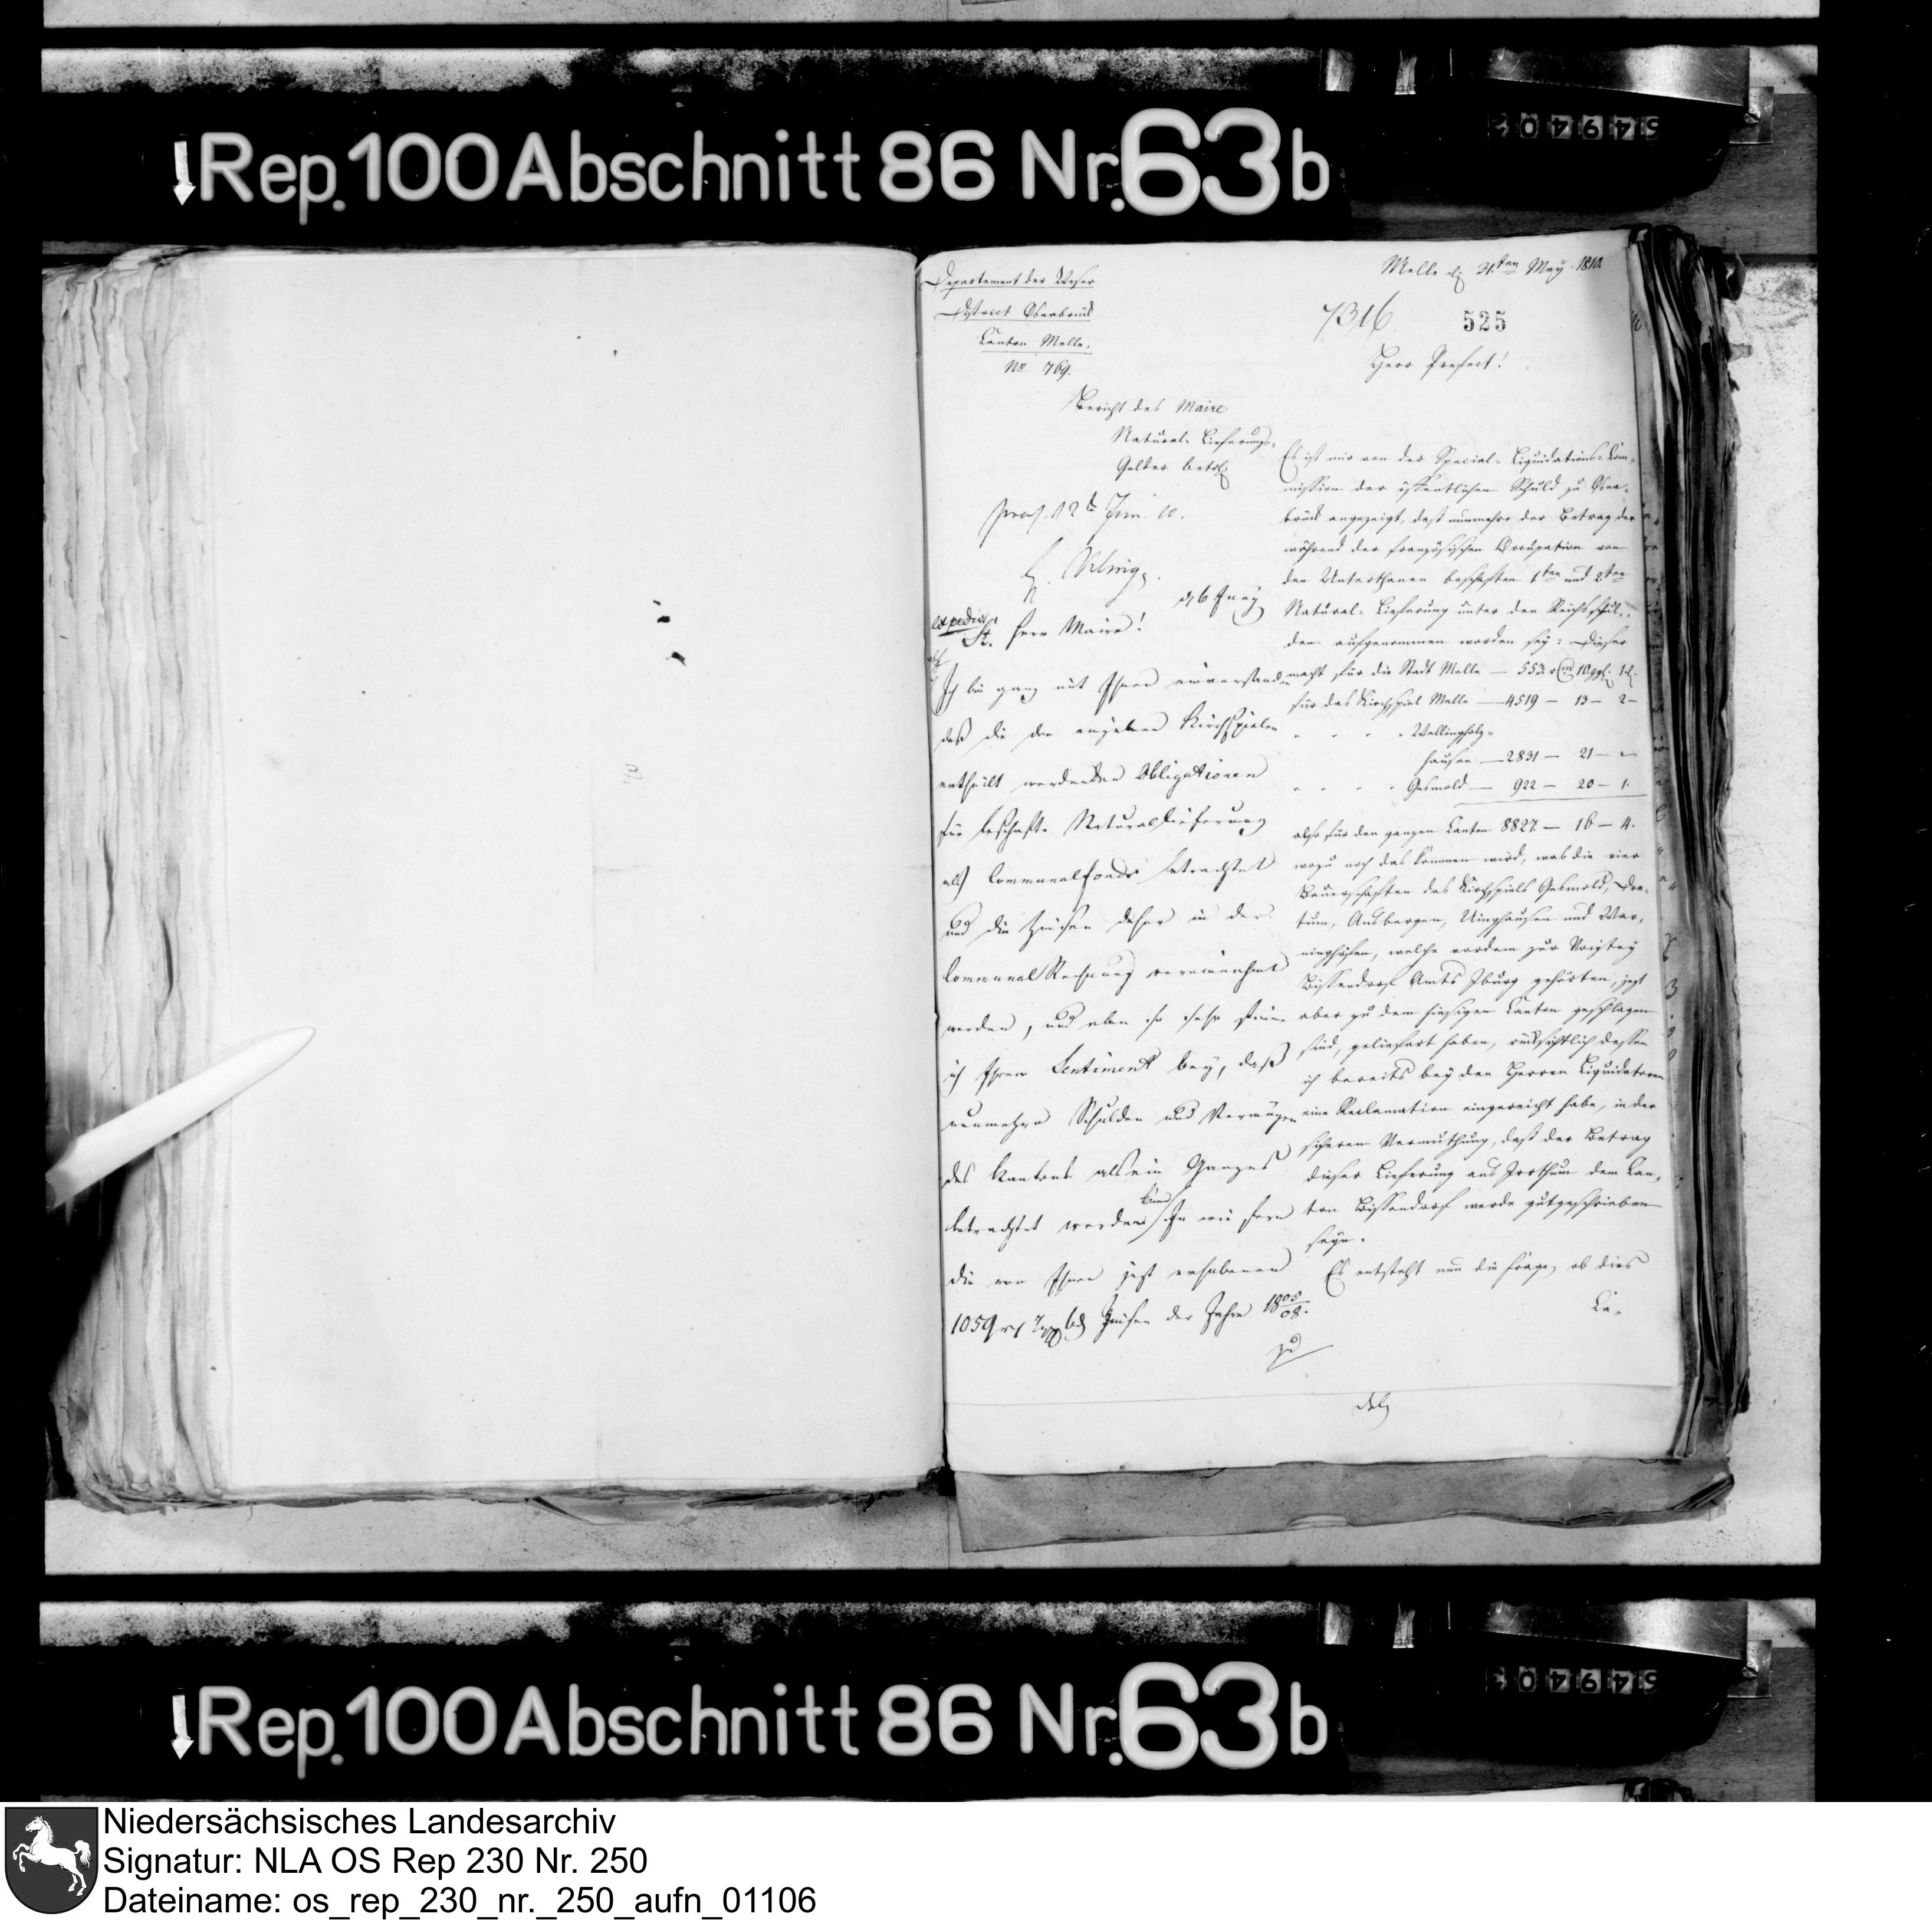 Rep. 100 Abschnitt 86 Nr. 63b
Departement der Weser
District Osnabrück
Canton Melle.
No 769.
Bericht des Maire
Natural-Lieferungs-
Gelder betr
praes. 12 Jun. 10.
expedirt
Herr Maire!
Ich bin ganz mit Ihnen einverstanden
daß die den einzelnen Kirchspielen
ertheilt werdenden Obligationen
für beschafte Naturallieferung
als Communalfonds betrachtet
und die Zinsen daher in der
Communal Rechnung vereinnahmt
werden, und eben so sehr stimme
ich Ihrem Sentiment bey, daß
nunmehro Schulden und Vermögen
des Kantons als ein Ganzes
betrachtet werden In wie fern
die von Ihnen jetzt erhobenen
1059 Zinsen der Jahre 1805/08.
Melle 31ten May 1810
7316
525
Herr Prefect!
Es ist mir von der Special-Liquidations-Com-
mission der öffentlichen Schuld zu Osna-
brück angezeigt, daß nunmehro der Betrag der
während der französischen Occupation von
den Unterthanen beschaften 1ten und 2ten
Natural-Lieferung unter den Reichsschul-
den aufgenommen worden sey: Dieser
macht für die Stadt Melle — 553 10 ggl. 1
für das Kirchspiel Melle — 4519 — 13 — 2 —
" " " " Wellingholz-
hausen — 2831 — 21 — "
" " " " Gesmold — 922 — 20 — 1.
also für den ganzen Canton 8827 — 16 — 4.
wozu noch das kommen wird, was die vier
Bauerschaften des Kirchspiels Gesmold, Dra-
tum, Ausbergen, Uinghausen und War-
ringhofen, welche vordem zur Voigtey
Bissendorf Amts Iburg gehörten, jetzt
aber zu dem hiesigen Canton geschlagen
sind, geliefert haben, rücksichtlich dessen
ich bereits bey den Herren Liquidatoren
eine Reclamation eingereicht habe, in der
sichern Vermuthung, daß der Betrag
dieser Lieferung aus Irrthum dem Can-
ton Bissendorf werde gutgeschrieben
seyn.
Es entsteht nun die Frage, ob dies
Niedersächsisches Landesarchiv
Signatur: NLA OS Rep 230 Nr. 250
Dateiname: os_rep_230_nr._250_aufn_01106
Rep. 100 Abschnitt 86 Nr. 63b